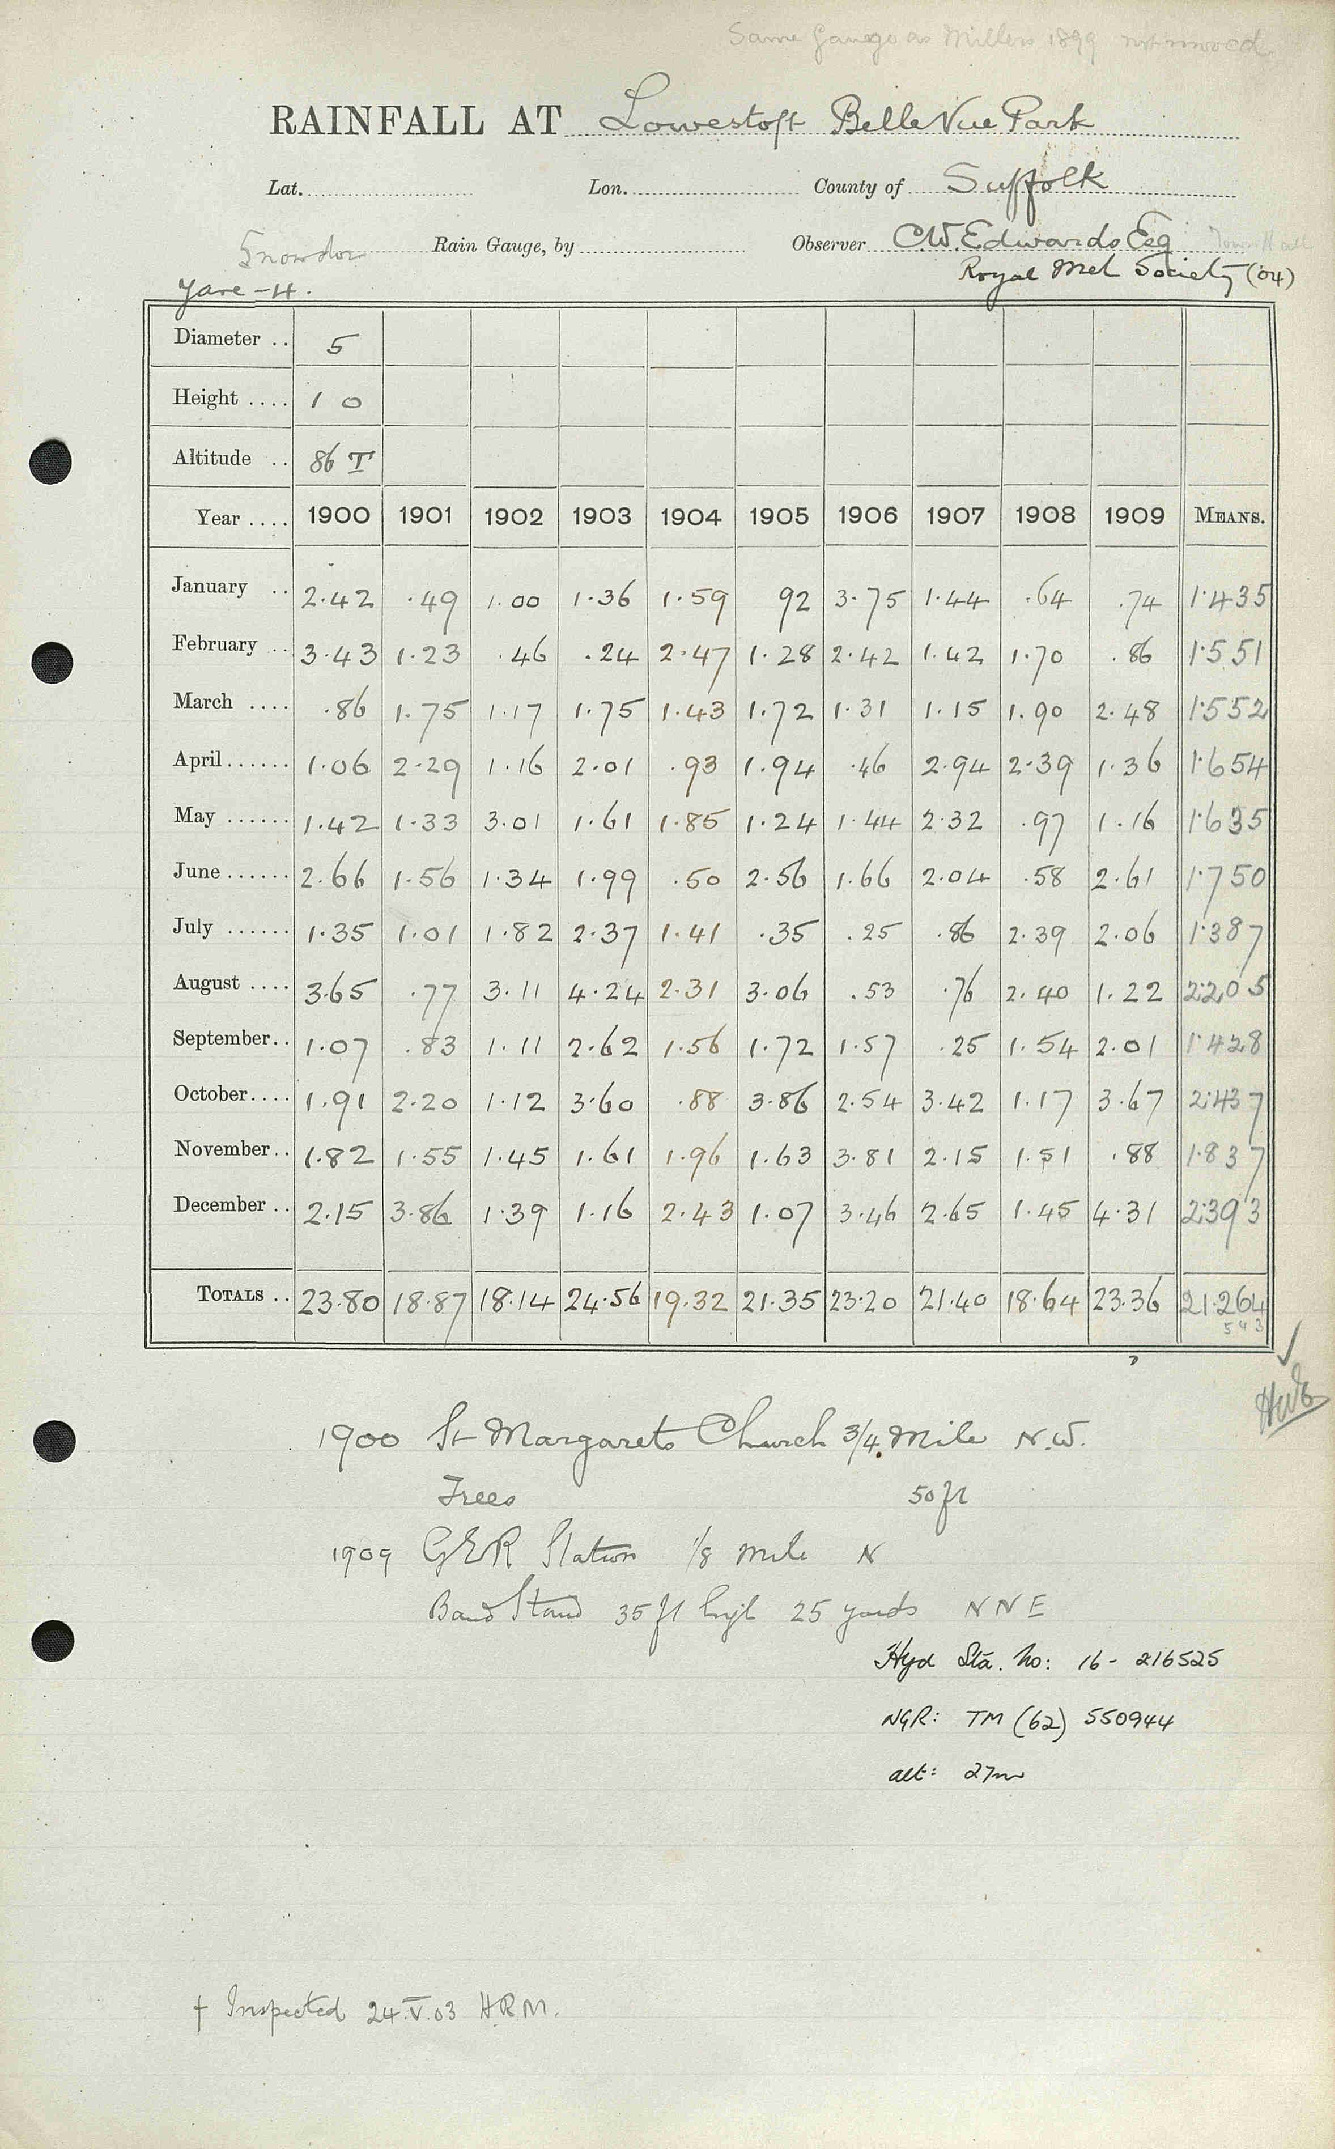 Same gauge as Millers 1899 not moved
RAINFALL AT Lowestoft Belle Vue Park
Lat. Lon. County of Suffolk
Snowdon Rain Gauge, by Observer C.W. Edwards Esq Town Hall
Yare - H. Royal Met Society ('04)
Diameter .. 5
Height .... 1 0
Altitude .. 86 T
Year .... 1900 1901 1902 1903 1904 1905 1906 1907 1908 1909 MEANS.
January .. 2.42 .49 1.00 1.36 1.59 92 3.75 1.44 .64 .74 1.435
February .. 3.43 1.23 .46 .24 2.47 1.28 2.42 1.42 1.70 .86 1.551
March .... .86 1.75 1.17 1.75 1.43 1.72 1.31 1.15 1.90 2.48 1.552
April...... 1.06 2.29 1.16 2.01 .93 1.94 .46 2.94 2.39 1.36 1.654
May ...... 1.42 1.33 3.01 1.61 1.85 1.24 1.44 2.32 .97 1.16 1.635
June...... 2.66 1.56 1.34 1.99 .50 2.56 1.66 2.04 .58 2.61 1.750
July ...... 1.35 1.01 1.82 2.37 1.41 .35 .25 .86 2.39 2.06 1.387
August .... 3.65 .77 3.11 4.24 2.31 3.06 .53 .76 2.40 1.22 2.205
September.. 1.07 .83 1.11 2.62 1.56 1.72 1.57 .25 1.54 2.01 1.428
October.... 1.91 2.20 1.12 3.60 .88 3.86 2.54 3.42 1.17 3.67 2.437
November.. 1.82 1.55 1.45 1.61 1.96 1.63 3.81 2.15 1.51 .88 1.837
December .. 2.15 3.86 1.39 1.16 2.43 1.07 3.46 2.65 1.45 4.31 2.393
TOTALS .. 23.80 18.87 18.14 24.56 19.32 21.35 23.20 21.40 18.64 23.36 21.264
543
1900 St Margarets Church 3/4 Mile N.W.
Trees 50 ft
1909 GER Station 1/8 mile N
Band Stand 35 ft high 25 yards NNE
Hyd Sta. No: 16 - 216525
NGR: TM (62) 550944
alt: 27m
† Inspected 24.V.03 H.R.M.